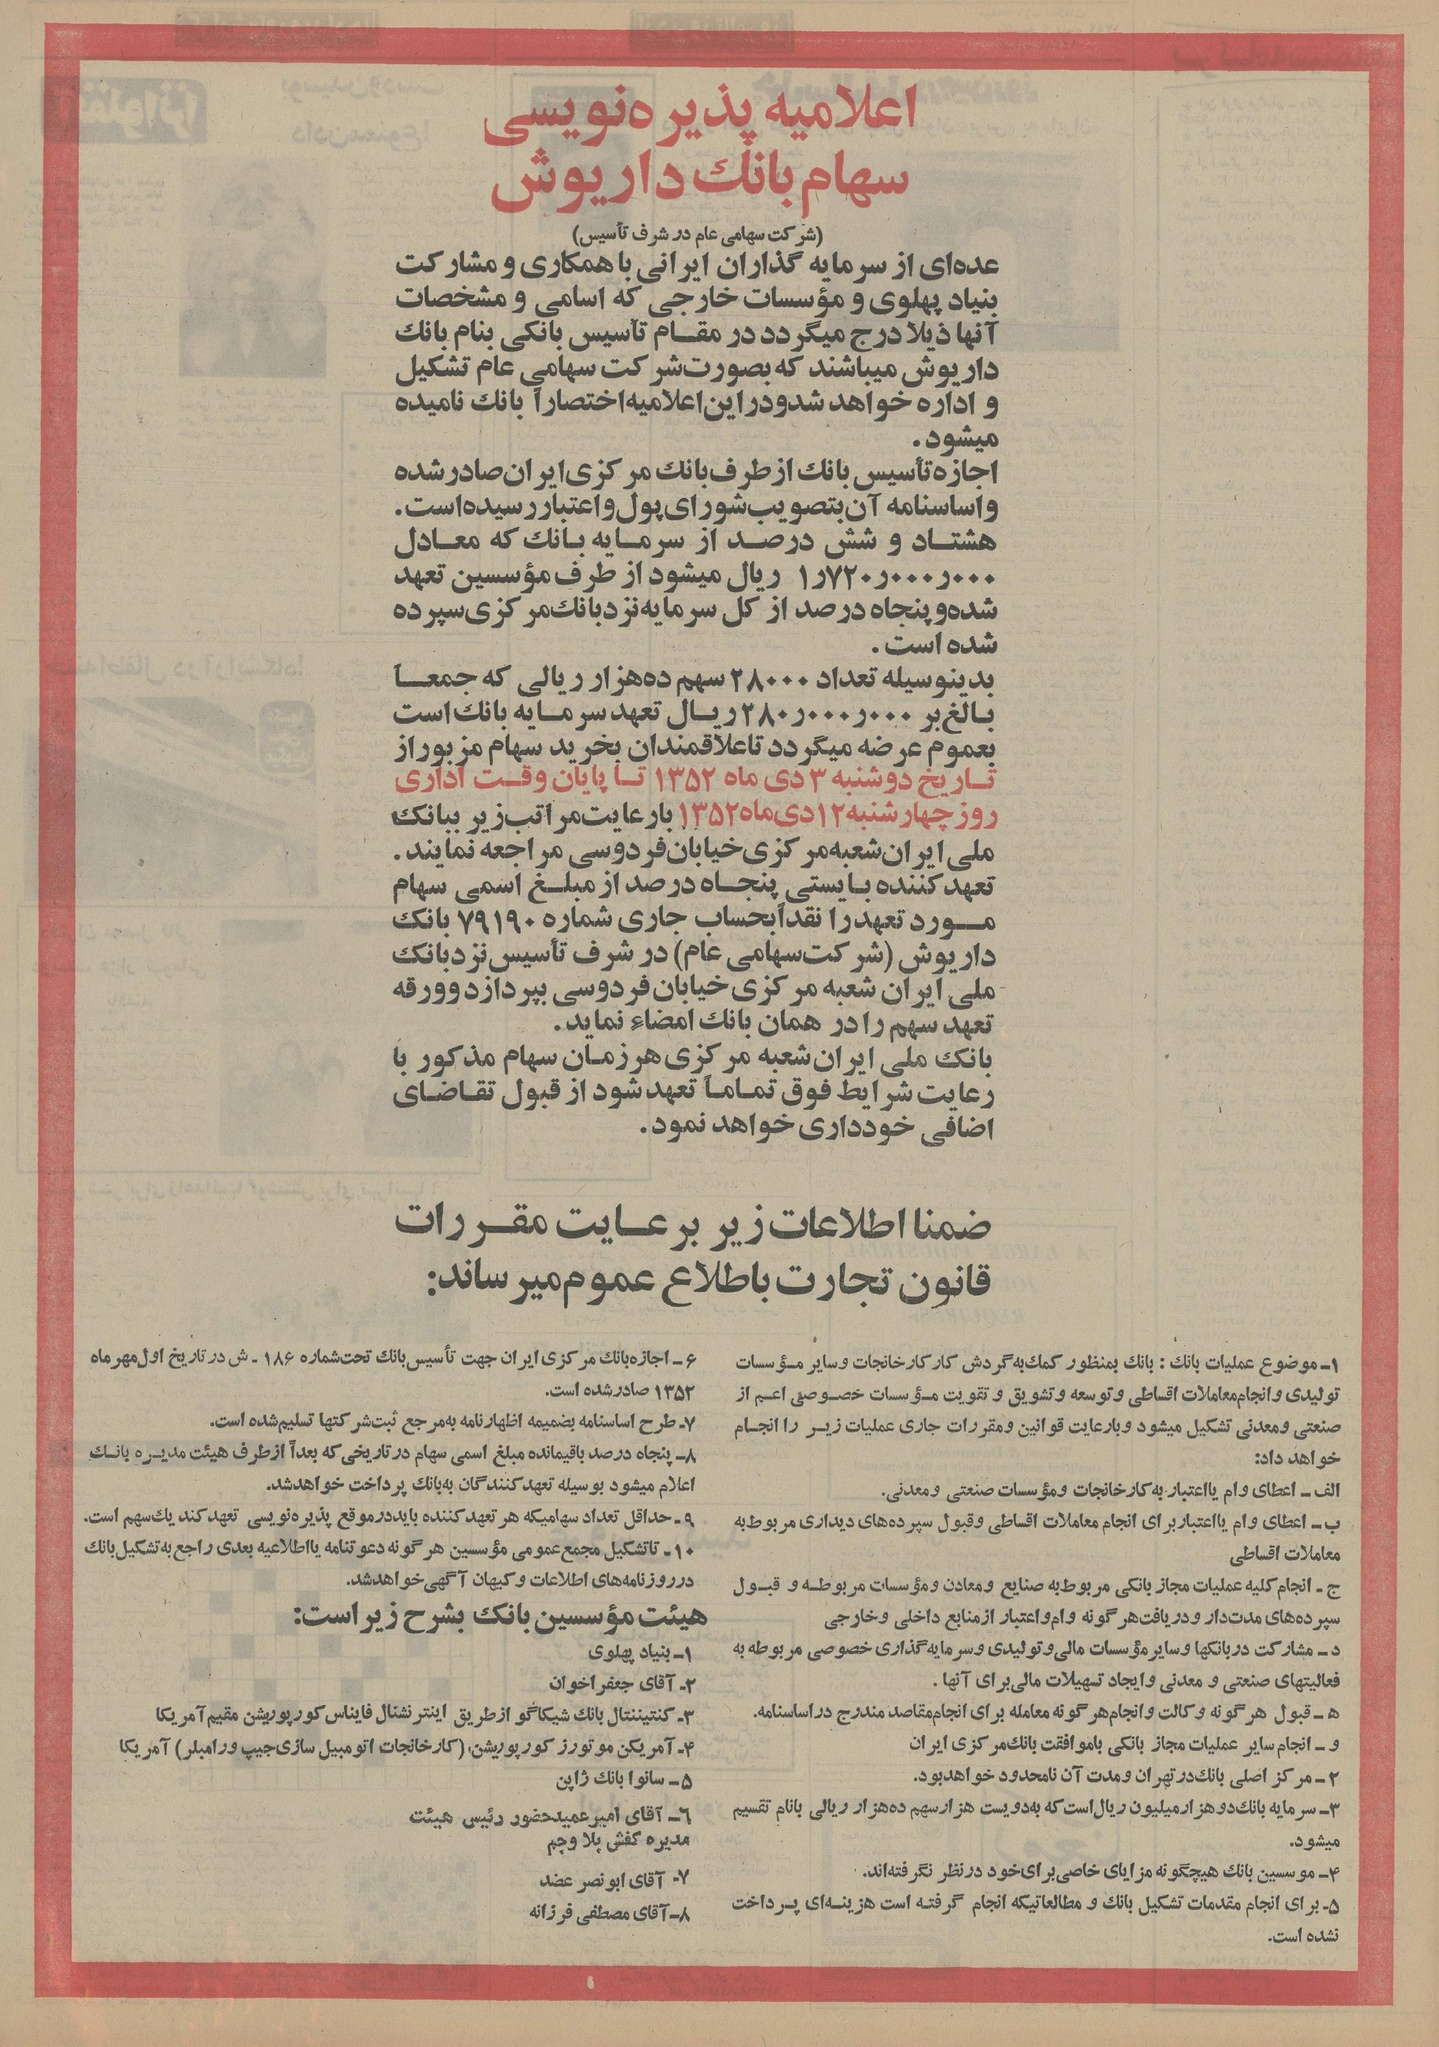 اعلامیه پذیره‌نویسی
سهام بانك داریوش
(شرکت سهامی عام در شرف تأسیس)
عده‌ای از سرمایه گذاران ایرانی با همکاری و مشارکت
بنیاد پهلوی و مؤسسات خارجی که اسامی و مشخصات
آنها ذیلا درج میگردد در مقام تأسیس بانکی بنام بانك
داریوش میباشند که بصورت شرکت سهامی عام تشکیل
و اداره خواهد شد و در این اعلامیه اختصاراً بانك نامیده
میشود.
اجازه تأسیس بانك از طرف بانك مرکزی ایران صادر شده
و اساسنامه آن بتصویب شورای پول و اعتبار رسیده است.
هشتاد و شش درصد از سرمایه بانك که معادل
۱ر۷۲۰ر۰۰۰ر۰۰۰ ریال میشود از طرف مؤسسین تعهد
شده و پنجاه درصد از کل سرمایه نزد بانك مرکزی سپرده
شده است.
بدینوسیله تعداد ۲۸۰۰۰ سهم ده هزار ریالی که جمعاً
بالغ بر ۲۸۰ر۰۰۰ر۰۰۰ ریال تعهد سرمایه بانك است
بعموم عرضه میگردد تا علاقمندان بخرید سهام مزبور از
تاریخ دوشنبه ۳ دی ماه ۱۳۵۲ تا پایان وقت اداری
روز چهارشنبه ۱۲ دی ماه ۱۳۵۲ با رعایت مراتب زیر ببانك
ملی ایران شعبه مرکزی خیابان فردوسی مراجعه نمایند.
تعهد کننده بایستی پنجاه درصد از مبلغ اسمی سهام
مورد تعهد را نقداً بحساب جاری شماره ۷۹۱۹۰ بانك
داریوش (شرکت سهامی عام) در شرف تأسیس نزد بانك
ملی ایران شعبه مرکزی خیابان فردوسی بپردازد و ورقه
تعهد سهم را در همان بانك امضاء نماید.
بانك ملی ایران شعبه مرکزی هر زمان سهام مذکور با
رعایت شرایط فوق تماماً تعهد شود از قبول تقاضای
اضافی خودداری خواهد نمود.
ضمنا اطلاعات زیر برعایت مقررات
قانون تجارت باطلاع عموم میرساند:
۱ـ موضوع عملیات بانك : بانك بمنظور کمك به گردش کار کارخانجات و سایر مؤسسات
تولیدی و انجام معاملات اقساطی و توسعه و تشویق و تقویت مؤسسات خصوصی اعم از
صنعتی و معدنی تشکیل میشود و با رعایت قوانین و مقررات جاری عملیات زیر را انجام
خواهد داد:
الف ـ اعطای وام یا اعتبار به کارخانجات و مؤسسات صنعتی و معدنی.
ب ـ اعطای وام یا اعتبار برای انجام معاملات اقساطی و قبول سپرده‌های دیداری مربوط به
معاملات اقساطی
ج ـ انجام کلیه عملیات مجاز بانکی مربوط به صنایع و معادن و مؤسسات مربوطه و قبول
سپرده‌های مدت‌دار و دریافت هر گونه وام و اعتبار از منابع داخلی و خارجی
د ـ مشارکت در بانکها و سایر مؤسسات مالی و تولیدی و سرمایه گذاری خصوصی مربوطه به
فعالیتهای صنعتی و معدنی و ایجاد تسهیلات مالی برای آنها.
ه ـ قبول هر گونه وکالت و انجام هر گونه معامله برای انجام مقاصد مندرج در اساسنامه.
و ـ انجام سایر عملیات مجاز بانکی با موافقت بانك مرکزی ایران
۲ـ مرکز اصلی بانك در تهران و مدت آن نامحدود خواهد بود.
۳ـ سرمایه بانك دو هزار میلیون ریال است که به دویست هزار سهم ده هزار ریالی با نام تقسیم
میشود.
۴ـ موسسین بانك هیچگونه مزایای خاصی برای خود در نظر نگرفته‌اند.
۵ـ برای انجام مقدمات تشکیل بانك و مطالعاتیکه انجام گرفته است هزینه‌ای پرداخت
نشده است.
۶ـ اجازه بانك مرکزی ایران جهت تأسیس بانك تحت شماره ۱۸۶ ـ ش در تاریخ اول مهر ماه
۱۳۵۲ صادر شده است.
۷ـ طرح اساسنامه بضمیمه اظهارنامه به مرجع ثبت شرکتها تسلیم شده است.
۸ـ پنجاه درصد باقیمانده مبلغ اسمی سهام در تاریخی که بعداً از طرف هیئت مدیره بانك
اعلام میشود بوسیله تعهد کنندگان به بانك پرداخت خواهد شد.
۹ـ حداقل تعداد سهامیکه هر تعهد کننده باید در موقع پذیره‌نویسی تعهد کند یك سهم است.
۱۰ـ تا تشکیل مجمع عمومی مؤسسین هر گونه دعوتنامه یا اطلاعیه بعدی راجع به تشکیل بانك
در روزنامه‌های اطلاعات و کیهان آگهی خواهد شد.
هیئت مؤسسین بانك بشرح زیر است:
۱ـ بنیاد پهلوی
۲ـ آقای جعفر اخوان
۳ـ کنتیننتال بانك شیکاگو از طریق اینترنشنال فاینانس کورپوریشن مقیم آمریکا
۴ـ آمریکن موتورز کورپوریشن، (کارخانجات اتومبیل سازی جیپ و رامبلر) آمریکا
۵ـ سانوا بانك ژاپن
۶ـ آقای امیر عمید حضور رئیس هیئت
مدیره کفش بلا و جم
۷ـ آقای ابونصر عضد
۸ـ آقای مصطفی فرزانه